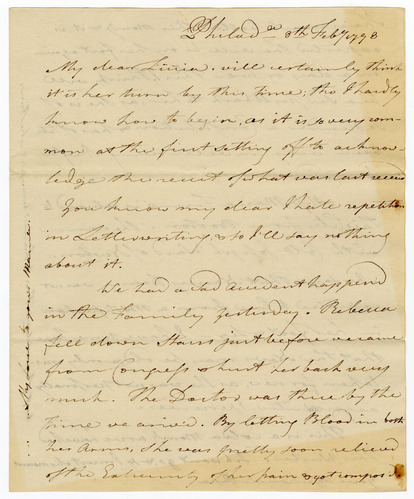 Philad.a 8th Feby 1798
My dear Linia. will certainly think
it is her turn by this time; tho I hardly
know how to begin, as it is so very com-
mon at the first setting off to acknow-
ledge the receit of what was last receivd
- You know my dear I hate repetition
in Letterwriting, & so I'll say nothing
about it.
We had a sad accident happend
in the Family yesterday. Rebecca
fell down Stairs just before we came
from Congress & hurt her back very
much. The Doctor was there by the
time we arived. By letting Blood in both
her Arms, She was pretty soon relieved
of the Extremity of her pain & got composd
My love to your Mama.